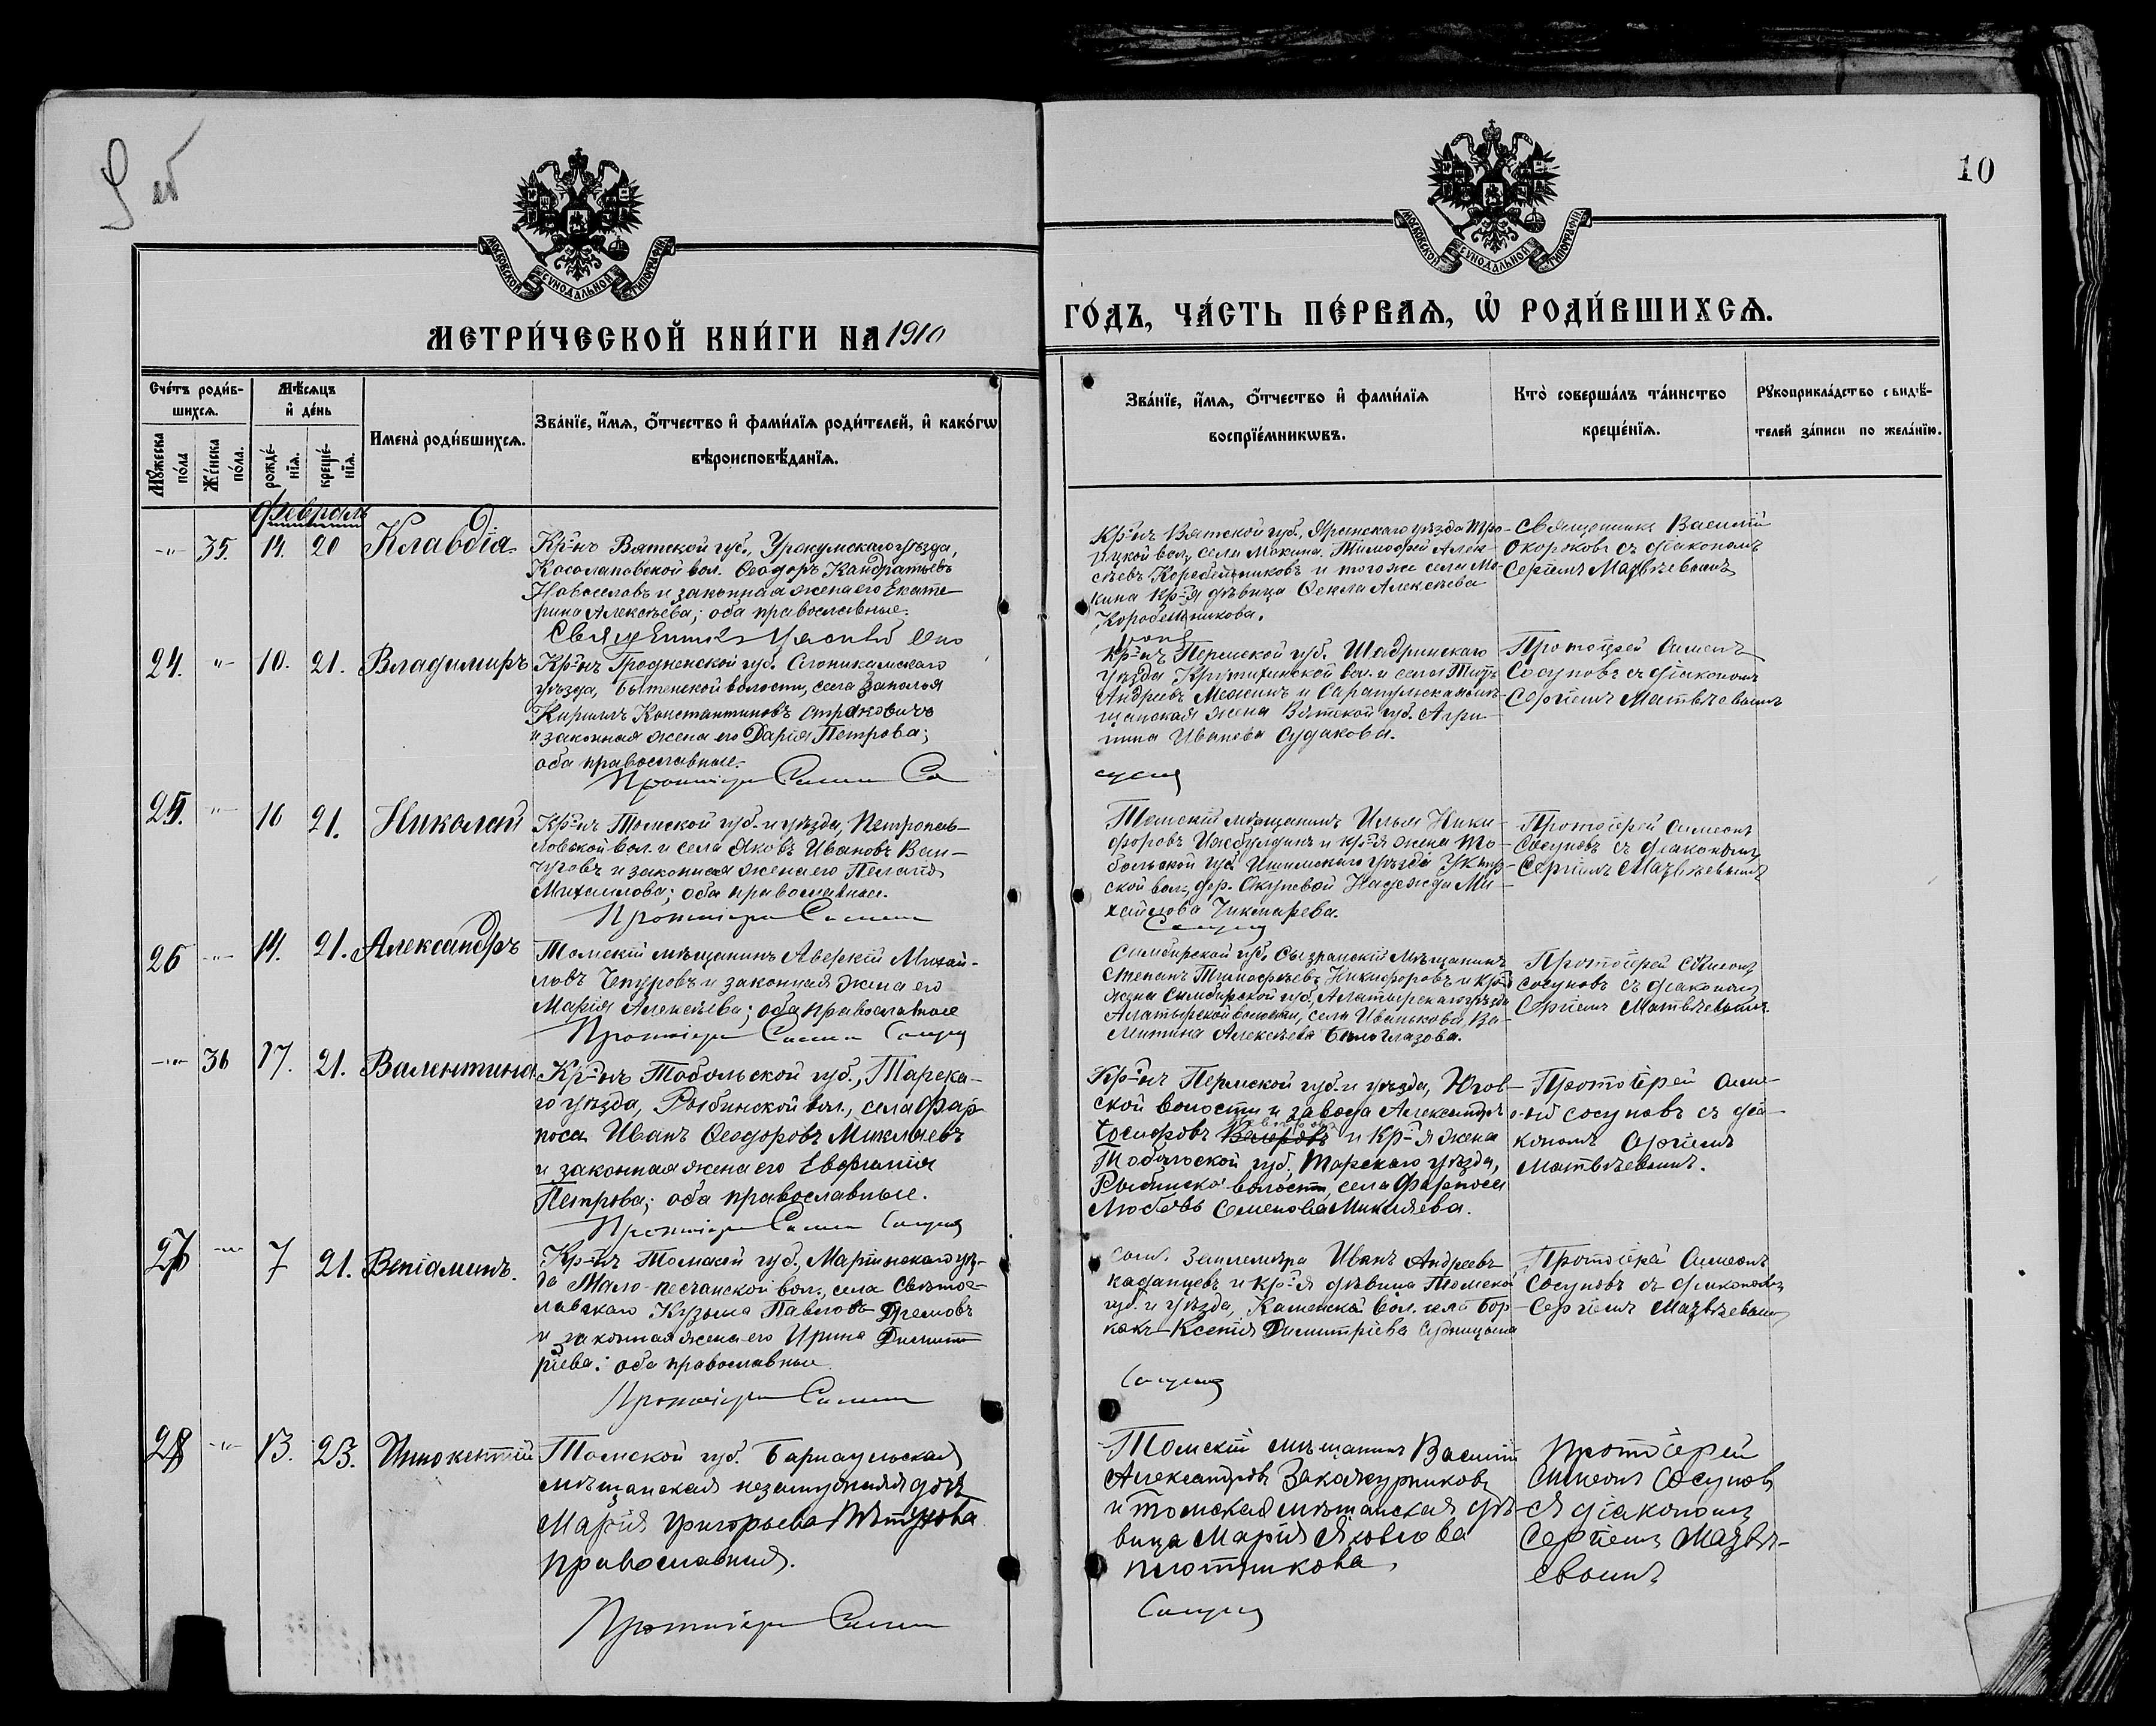 10
МОСКОВСКОЙ СУНОДАЛЬНОЙ ТИПОГРАФІИ
МОСКОВСКОЙ СУНОДАЛЬНОЙ ТИПОГРАФІИ
МЕТРИ́ЧЕСКОЙ КНИ́ГИ НА 1910
ГО́ДЪ, ЧА́СТЬ ПЕ́РВАѦ, Ѡ҆ РОДИ́ВШИХСѦ.
Сче́тъ роди́в-
шихсѧ.
Мꙋжеска
по́ла
Же́нска
по́ла.
Мѣ́сѧцъ
и҆ де́нь
рожде́-
нїѧ.
креще́-
нїѧ.
Имена̀ роди́вшихсѧ.
Зва́нїе, и҆́мѧ, ѻ҆́тчество и҆ фами́лїѧ роди́телей, и҆ како́гѡ
вѣроисповѣ́данїѧ.
Зва́нїе, и҆́мѧ, ѻ҆́тчество и҆ фами́лїѧ
воспрїе́мникѡвъ.
Кто̀ соверша́лъ та́инство
креще́нїѧ.
Рꙋкоприкла́дство свидѣ́-
телей за́писи по жела́нїю.
Февраль
-"- 35. 14. 20 Клавдіа
Кр-нъ Вятской губ., Уржумскаго уѣзда,
Косолаповской вол. Ѳеодоръ Кандратьевъ
Новоселовъ и законная жена его Екате-
рина Алексѣева; оба православные.
Священникъ
Кр-нъ Вятской губ., Яранскаго уѣзда Тро-
ицкой вол., села Мокина. Тимофей Алек-
сѣевъ Коробейниковъ и тогоже села Мо-
кина кр-я дѣвица Ѳекла Алексѣева
Коробейникова.
Священникъ Василій
Окороковъ съ діакономъ
Сергіемъ Матвѣевымъ
24. " 10. 21. Владимиръ
Кр-нъ Гродненской губ. Слонимскаго
уѣзда, Бытенской волости, села Заполья
Кириллъ Константиновъ
и законная жена его Дарія Петрова;
оба православные.
Протоіерей Симеонъ Со
Кр-нъ Пермской губ. Шадринскаго
уѣзда Крутихинской вол. и села Титъ
Андреевъ и Сарапульская мѣ-
щанская жена Вятской губ. Агри-
пина Иванова Судакова.
суновъ
Протоіерей Симеонъ
Сосуновъ съ діакономъ
Сергіемъ Матвѣевымъ
25. " 16 21. Николай
Кр-нъ Томской губ. и уѣзда, Петропав-
ловской вол. и села Яковъ Ивановъ
и законная жена его Пелагія
Михаилова; оба православные.
Протоіерей Симеонъ
Томскій мѣщанинъ Илья Ники-
форовъ и кр-я жена То-
больской губ. Ишимскаго уѣзда
ской вол., дер. Окуневой Надежда Ми-
хайлова Чикмарева.
Сосуновъ
Протоіерей Симеонъ
Сосуновъ съ діакономъ
Сергіемъ Матвѣевымъ
26 -"- 14. 21. Александръ
Томскій мѣщанинъ Аверкій Михай-
ловъ Чепуровъ и законная жена его
Марія Алексѣева; оба православные
Протоіерей Симеонъ Сосуновъ
Симбирской губ. Сызранскій мѣщанинъ
Степанъ Тимофѣевъ Никифоровъ и кр-я
жена Симбирской губ., Алатырскаго уѣзда
Алатырской волости, села Иванькова
Алексѣева Бѣлоглазова.
Протоіерей Симеонъ
Сосуновъ съ діакономъ
Сергіемъ Матвѣевымъ
-"- 36 17. 21. Валентина
Кр-нъ Тобольской губ., Тарска-
го уѣзда, Рыбинской вол., села Фир-
поса Иванъ Ѳеодоровъ Микляевъ
и законная жена его Евфимія
Петрова; оба православные.
Протоіерей Симеонъ Сосуновъ
Кр-нъ Пермской губ. и уѣзда, Югов-
ской волости и завода Александръ
Іосифовъ и кр-я жена
Тобольской губ. Тарскаго уѣзда,
Рыбинской волости, села Фирпоса
Любовь Семенова Микляева.
Протоіерей Симе-
онъ Сосуновъ съ діа-
кономъ Сергіемъ
Матвѣевымъ.
27 -"- 7 21. Веніаминъ.
Кр-нъ Томской губ., Маріинскаго уѣз-
да Мало-песчанской вол., села Святос-
лавскаго Кузьма Павловъ Дремовъ
и законная жена его Ирина Димит-
ріева: оба православные
Протоіерей Симеонъ
землемѣра Иванъ Андреевъ
Каданцевъ и кр-я дѣвица Томской
губ. и уѣзда, Каменской вол. села Бор-
Ксенія Димитріева
Сосуновъ
Протоіерей Симеонъ
Сосуновъ съ діакономъ
Сергіемъ Матвѣевымъ
28 -"- 13. 23. Иннокентій
Томской губ. Барнаульская
мѣщанская незамужняя дочь
Марія Григорьева Пѣтухова
православная.
Протоіерей Симеонъ
Томскій мѣщанинъ Василій
Александровъ Закажурниковъ
и Томская мѣщанская дѣ-
вица Марія Яковлева
Плотникова.
Сосуновъ
Протоіерей
Симеонъ Сосуновъ
съ діакономъ
Сергіемъ Матвѣ-
евымъ